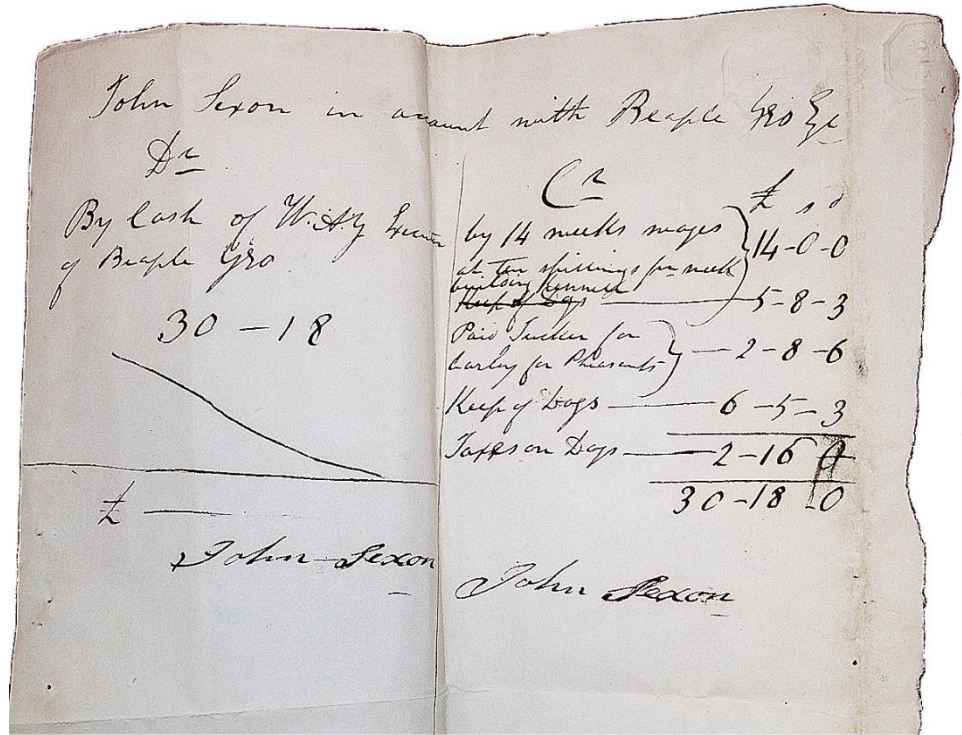 John Sexon in account with Beaple Yeo Esq
Dr
By Cash of W.A.Y
of Beaple Yeo
30 - 18
£
John Sexon
Cr
£ s d
by 14 weeks wages
at ten shillings per week 14-0-0
building kennell
Keep of Dogs 5-8-3
Paid Tucker for
barley for Pheasants 2-8-6
Keep of Dogs 6-5-3
Taxes on Dogs 2-16 0
30-18-0
John Sexon